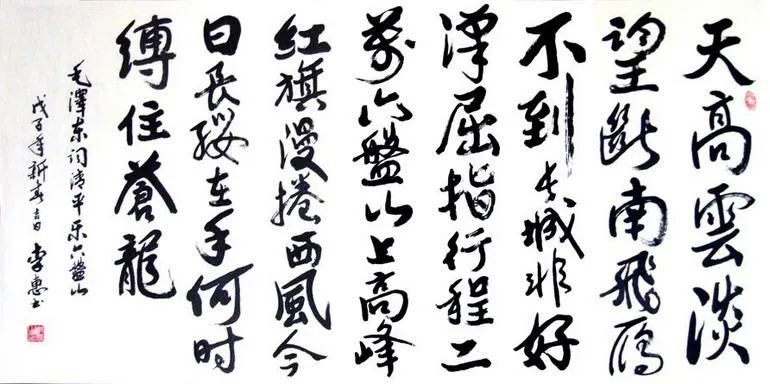 天高雲淡
望斷南飛雁
不到长城非好
漢屈指行程二
萬六盤山上高峰
红旗漫捲西風今
日長缨在手何时
縛住蒼龍
毛澤东词清平乐六盤山
戊子年新春吉日 李惠书